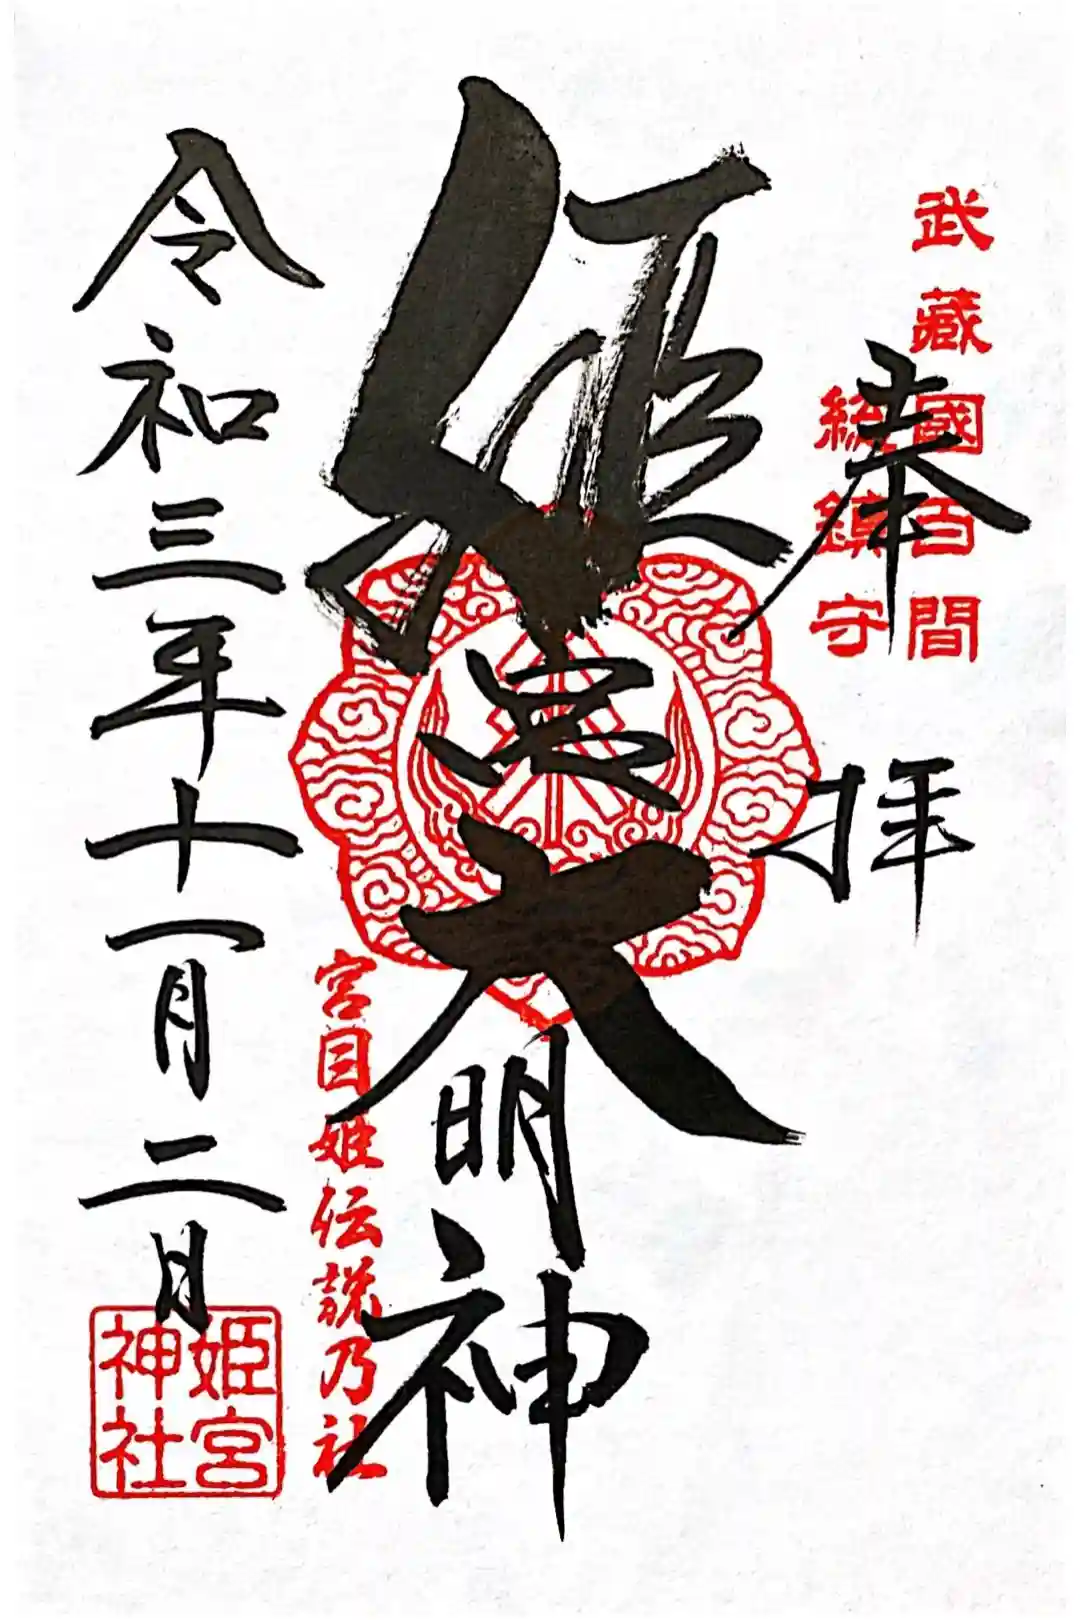 武藏國百間
総鎮守
奉拝
姫宮大明神
宮目姫伝説乃社
令和三年十一月二日
姫宮神社